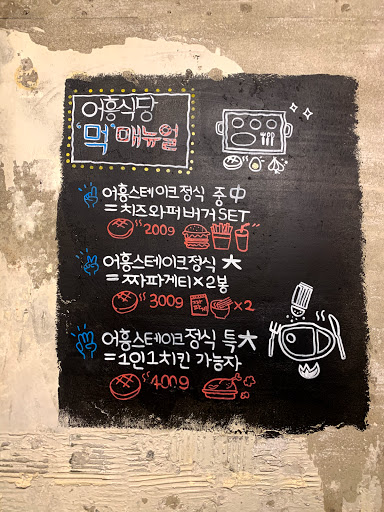 어흥식당
"먹"매뉴얼
어흥스테이크정식 중 中
= 치즈와퍼버거 SET
200g
어흥스테이크정식 大
= 짜파게티×2봉
300g ×2
어흥스테이크정식 특大
= 1인1치킨 가능자
400g